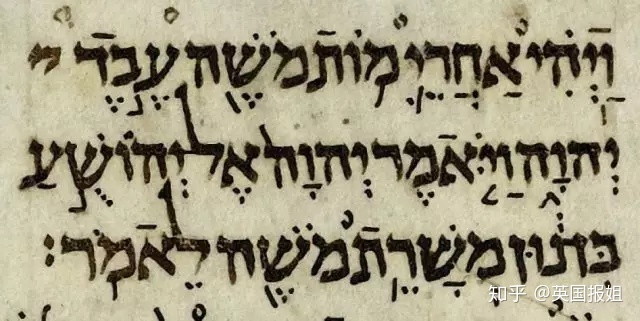 וַיְהִי אַחֲרֵי מוֹת מֹשֶׁה עֶבֶד י
יְהוָה וַיֹּאמֶר יְהוָה אֶל יְהוֹשֻׁעַ
בִּן נוּן מְשָׁרֵת מֹשֶׁה לֵאמֹר׃
知乎 @英国报姐